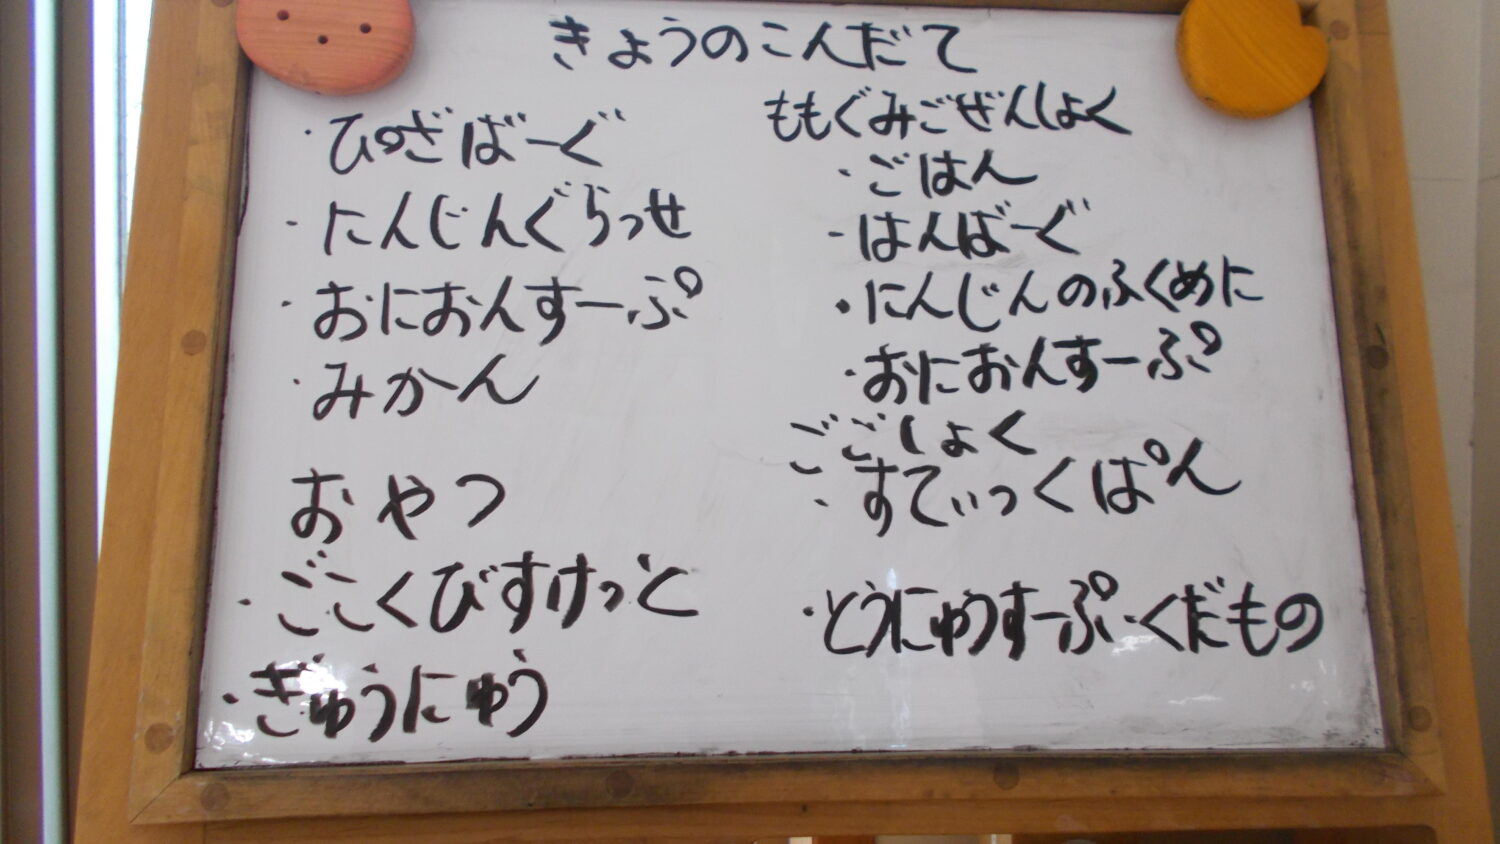 きょうのこんだて
・ぴざばーぐ
・にんじんぐらっせ
・おにおんすーぷ
・みかん
おやつ
・ごこくびすけっと
・ぎゅうにゅう
ももぐみごぜんしょく
・ごはん
・はんばーぐ
・にんじんのふくめに
・おにおんすーぷ
ごごしょく
・すてぃっくぱん
・とうにゅうすーぷ・くだもの